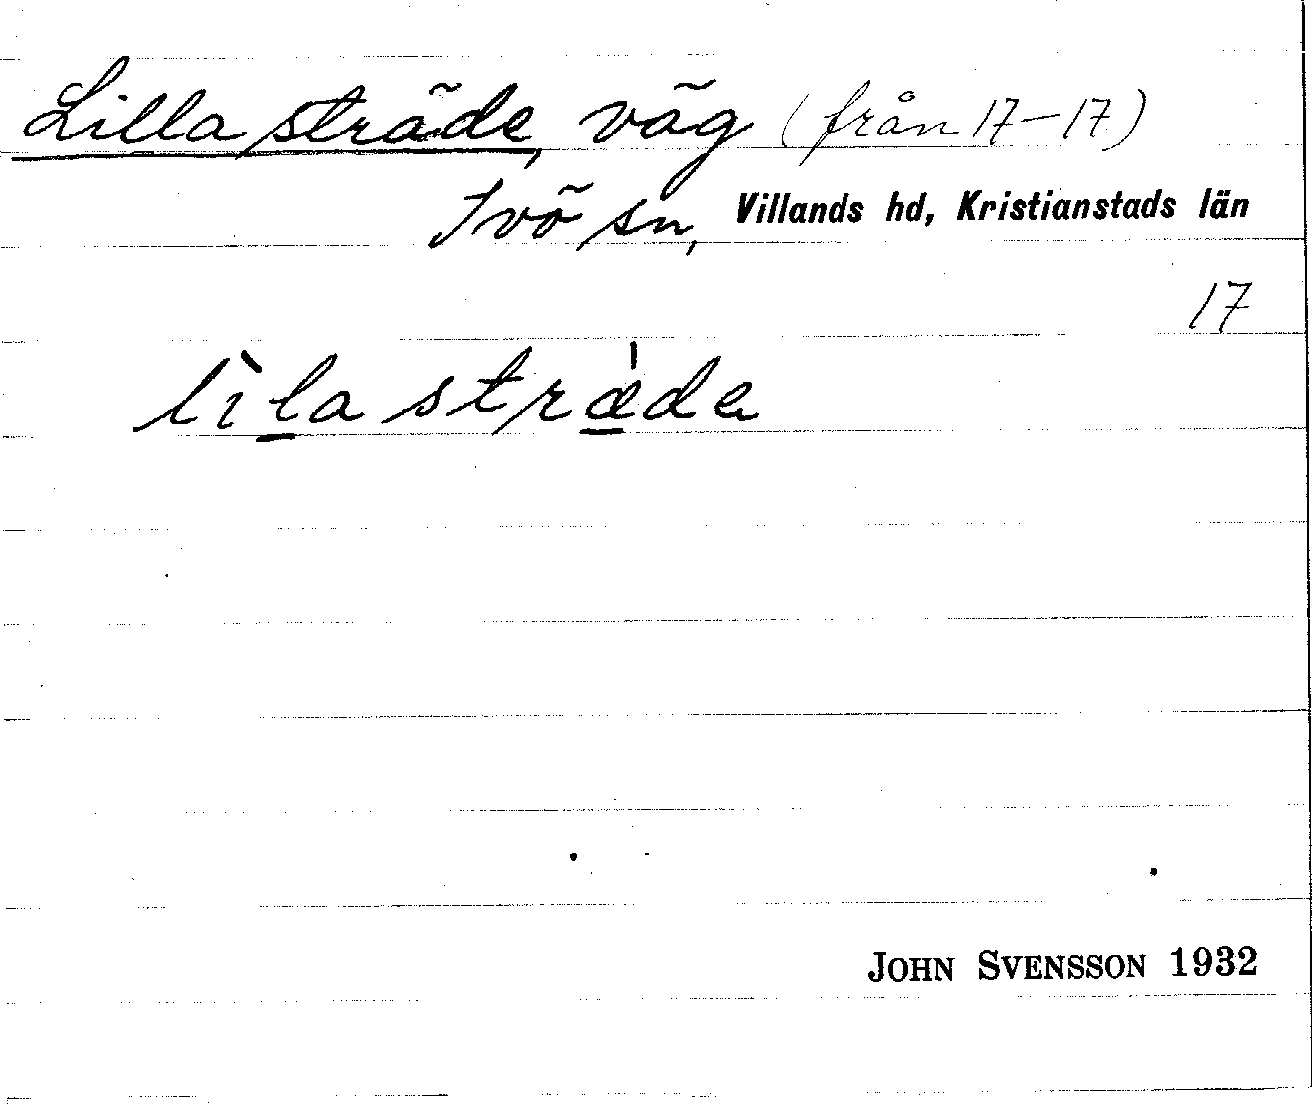 Lilla sträde, väg (från 17-17)
Ivö sn, Villands hd, Kristianstads län
17
lìla strǽde
JOHN SVENSSON 1932